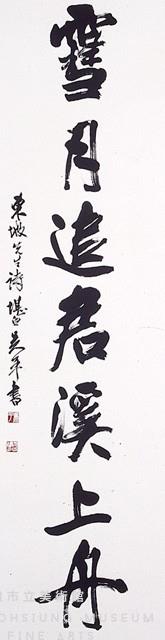 雪月追君溪上舟
東坡先生詩 堪白吳平書
市立美術館
OHSIUNG MUSEUM
FINE ARTS